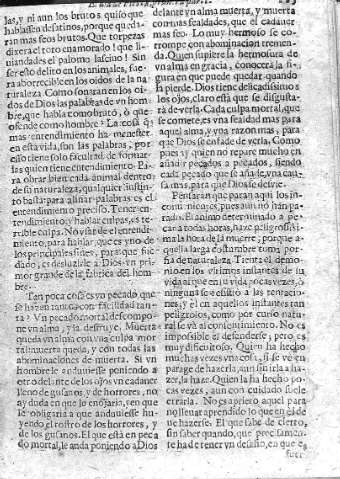 las, y ni aun los brutos si quio que
hablassen destinos, porque queda-
ran mas feos brutos. Que torpezas
dixera el toro enamorado! que li-
uiandades el palomo lasciuo! Sin
ser esto delito en los animales, fue-
ra aborrecible en los oidos de la na-
turaleza Como sonaràn en los oi-
dos de Dios las palabras de vn hom-
bre, que habla como bruto, ò que
ofende como hombre? La cosa q̃
mas entendimiento ha menester
en esta vida, son las palabras, por
esso tiene solo facultad de formar-
las quien tiene entendimiento. Pa-
ra obrar bien cada animal dentro
de su naturaleza, qualquier instin-
to basta para aliñar palabras es el
entendimiento preciso. Tener en-
tendimiento, y hablar culpas, es te-
rrible culpa. No vsar de el entendi-
miento, para hablar, que es vno de
los principales fines, para que fue
dado, es desluzirle à Dios vn pri-
mor grande de la fabrica del hom-
bre.
Tan poca cosa es vn pecado que
se hazen tantos con facilidad tan-
ta? Vn pecado mortal descompo-
ne vn alma, y la destruye. Muerta
queda vn alma con vna culpa mor-
tal muerta queda, y con todas las
abominaciones de muerta. Si vn
hombre le anduuiesse poniendo a
otro delante de los ojos vn cadauer
lleno de gusanos y de horrores, no
ay duda en que le enojaria, en que
le obligaria a que anduuiesse hu-
yendo el rostro de los horrores, y
de los gusanos. El que està en peca
do mortal, le anda poniendo a Dios
delante vn alma muerta, y muerta
con mas fealdades, que el cadauer
mas feo. Lo muy hermoso se co-
rrompe con abominacion tremen-
da. Quien supiere la hermosura de
vn alma en gracia, conocerà la fi-
gura en que puede quedar quando
la pierde. Dios tiene delicadissimos
los ojos, claro està que se disgusta-
rà de verla. Cada culpa mortal, que
se comete, es vna fealdad mas para
aquel alma, y vna razon mas, para
que Dios se enfade de verla. Como
pues ay quien no repare mucho en
añadir pecados a pecados, siendo
cada pecado que se añade, vna cau-
sa mas, para que Dios se desvie.
Pensaràn que paran aqui los in-
conuenientes, pues aun no han pa-
rado. El animo determinado a pe-
car a todas horas, haze peligrosissi-
ma la hora de la muerte; porque a-
quella larga costumbre toma for-
ma de naturaleza Tienta el demo-
nio en los vltimos instantes de su
vida al que en su vida pocas vezes, ò
ninguna se resistio a las tentacio-
nes, y el en aquellos instantes tan
peligrosos, como por curso natu-
ral se và al consentimiento. No es
impossible el defenderse, pero es
muy dificultoso. Quien ha hecho
muchas vezes vna cosa, si se vè en
parage de hazerla, aun sin irla a ha-
zer, la haze. Quien la ha hecho po-
cas vezes, aun con cuidado suele
errarla. No es aprieto aquel para
no lleuar aprendido lo que en èl de
ue hazerse. El que sabe de cierto,
sin saber quando, que precisamen-
te ha de tener vn desafio, en que es
fuer